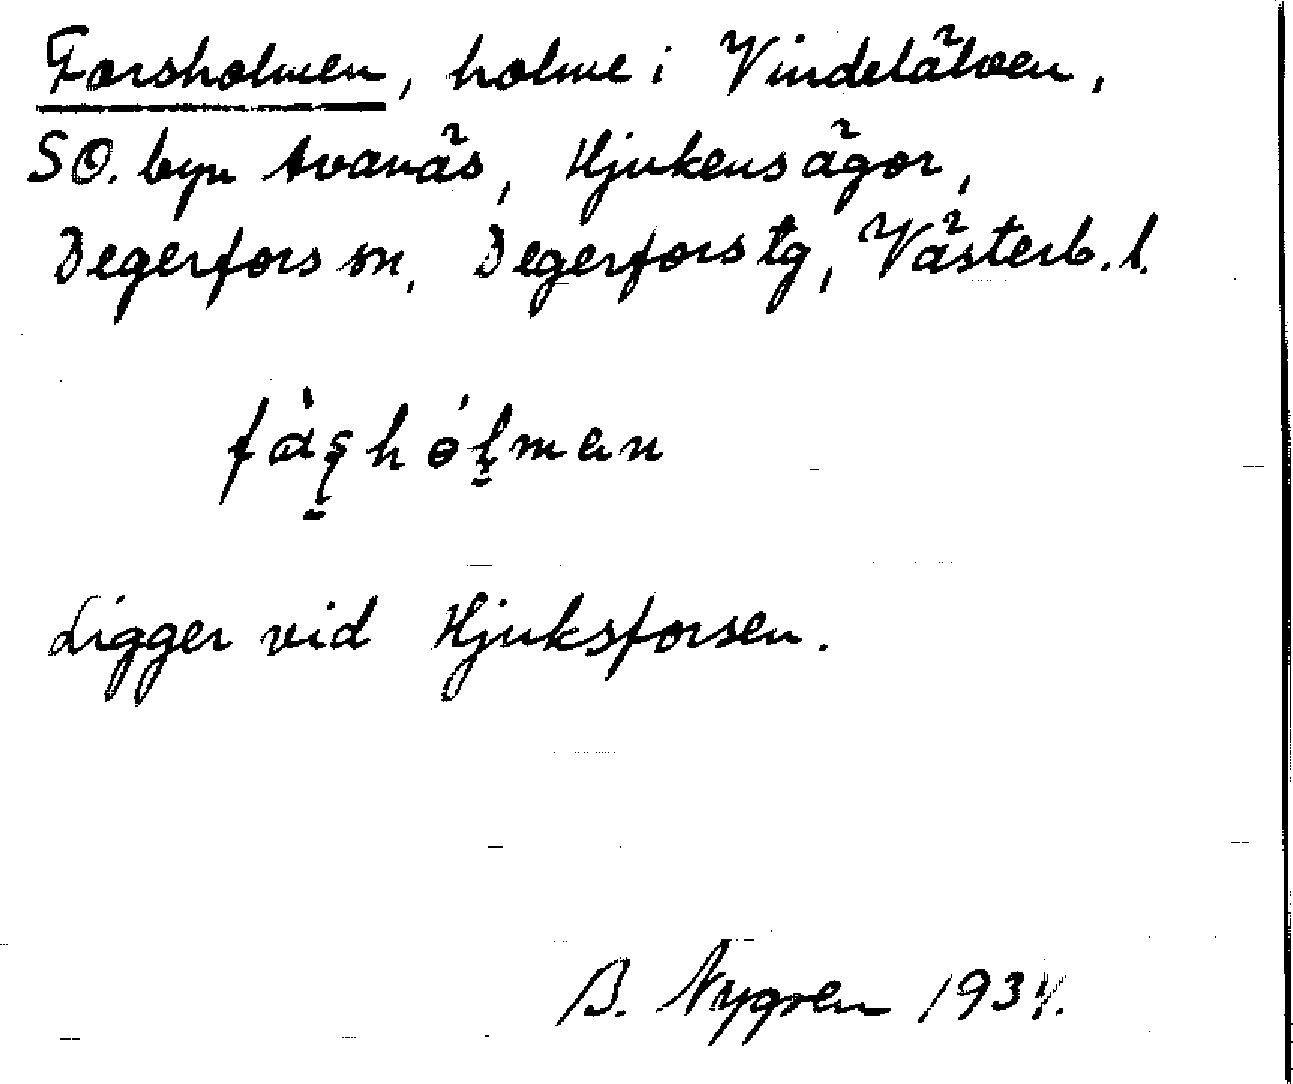 Forsholmen, holme i Vindelälven,
SO. byn Avanäs, Hjukens ägor,
Degerfors sn, Degerfors tg, Västerb. l.
fàʂhólman
Ligger vid Hjuksforsen.
B. Nygren 1934.